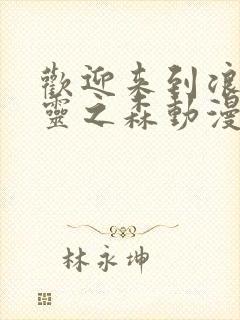 歡迎来到浪
靈之森動漫
林永坤